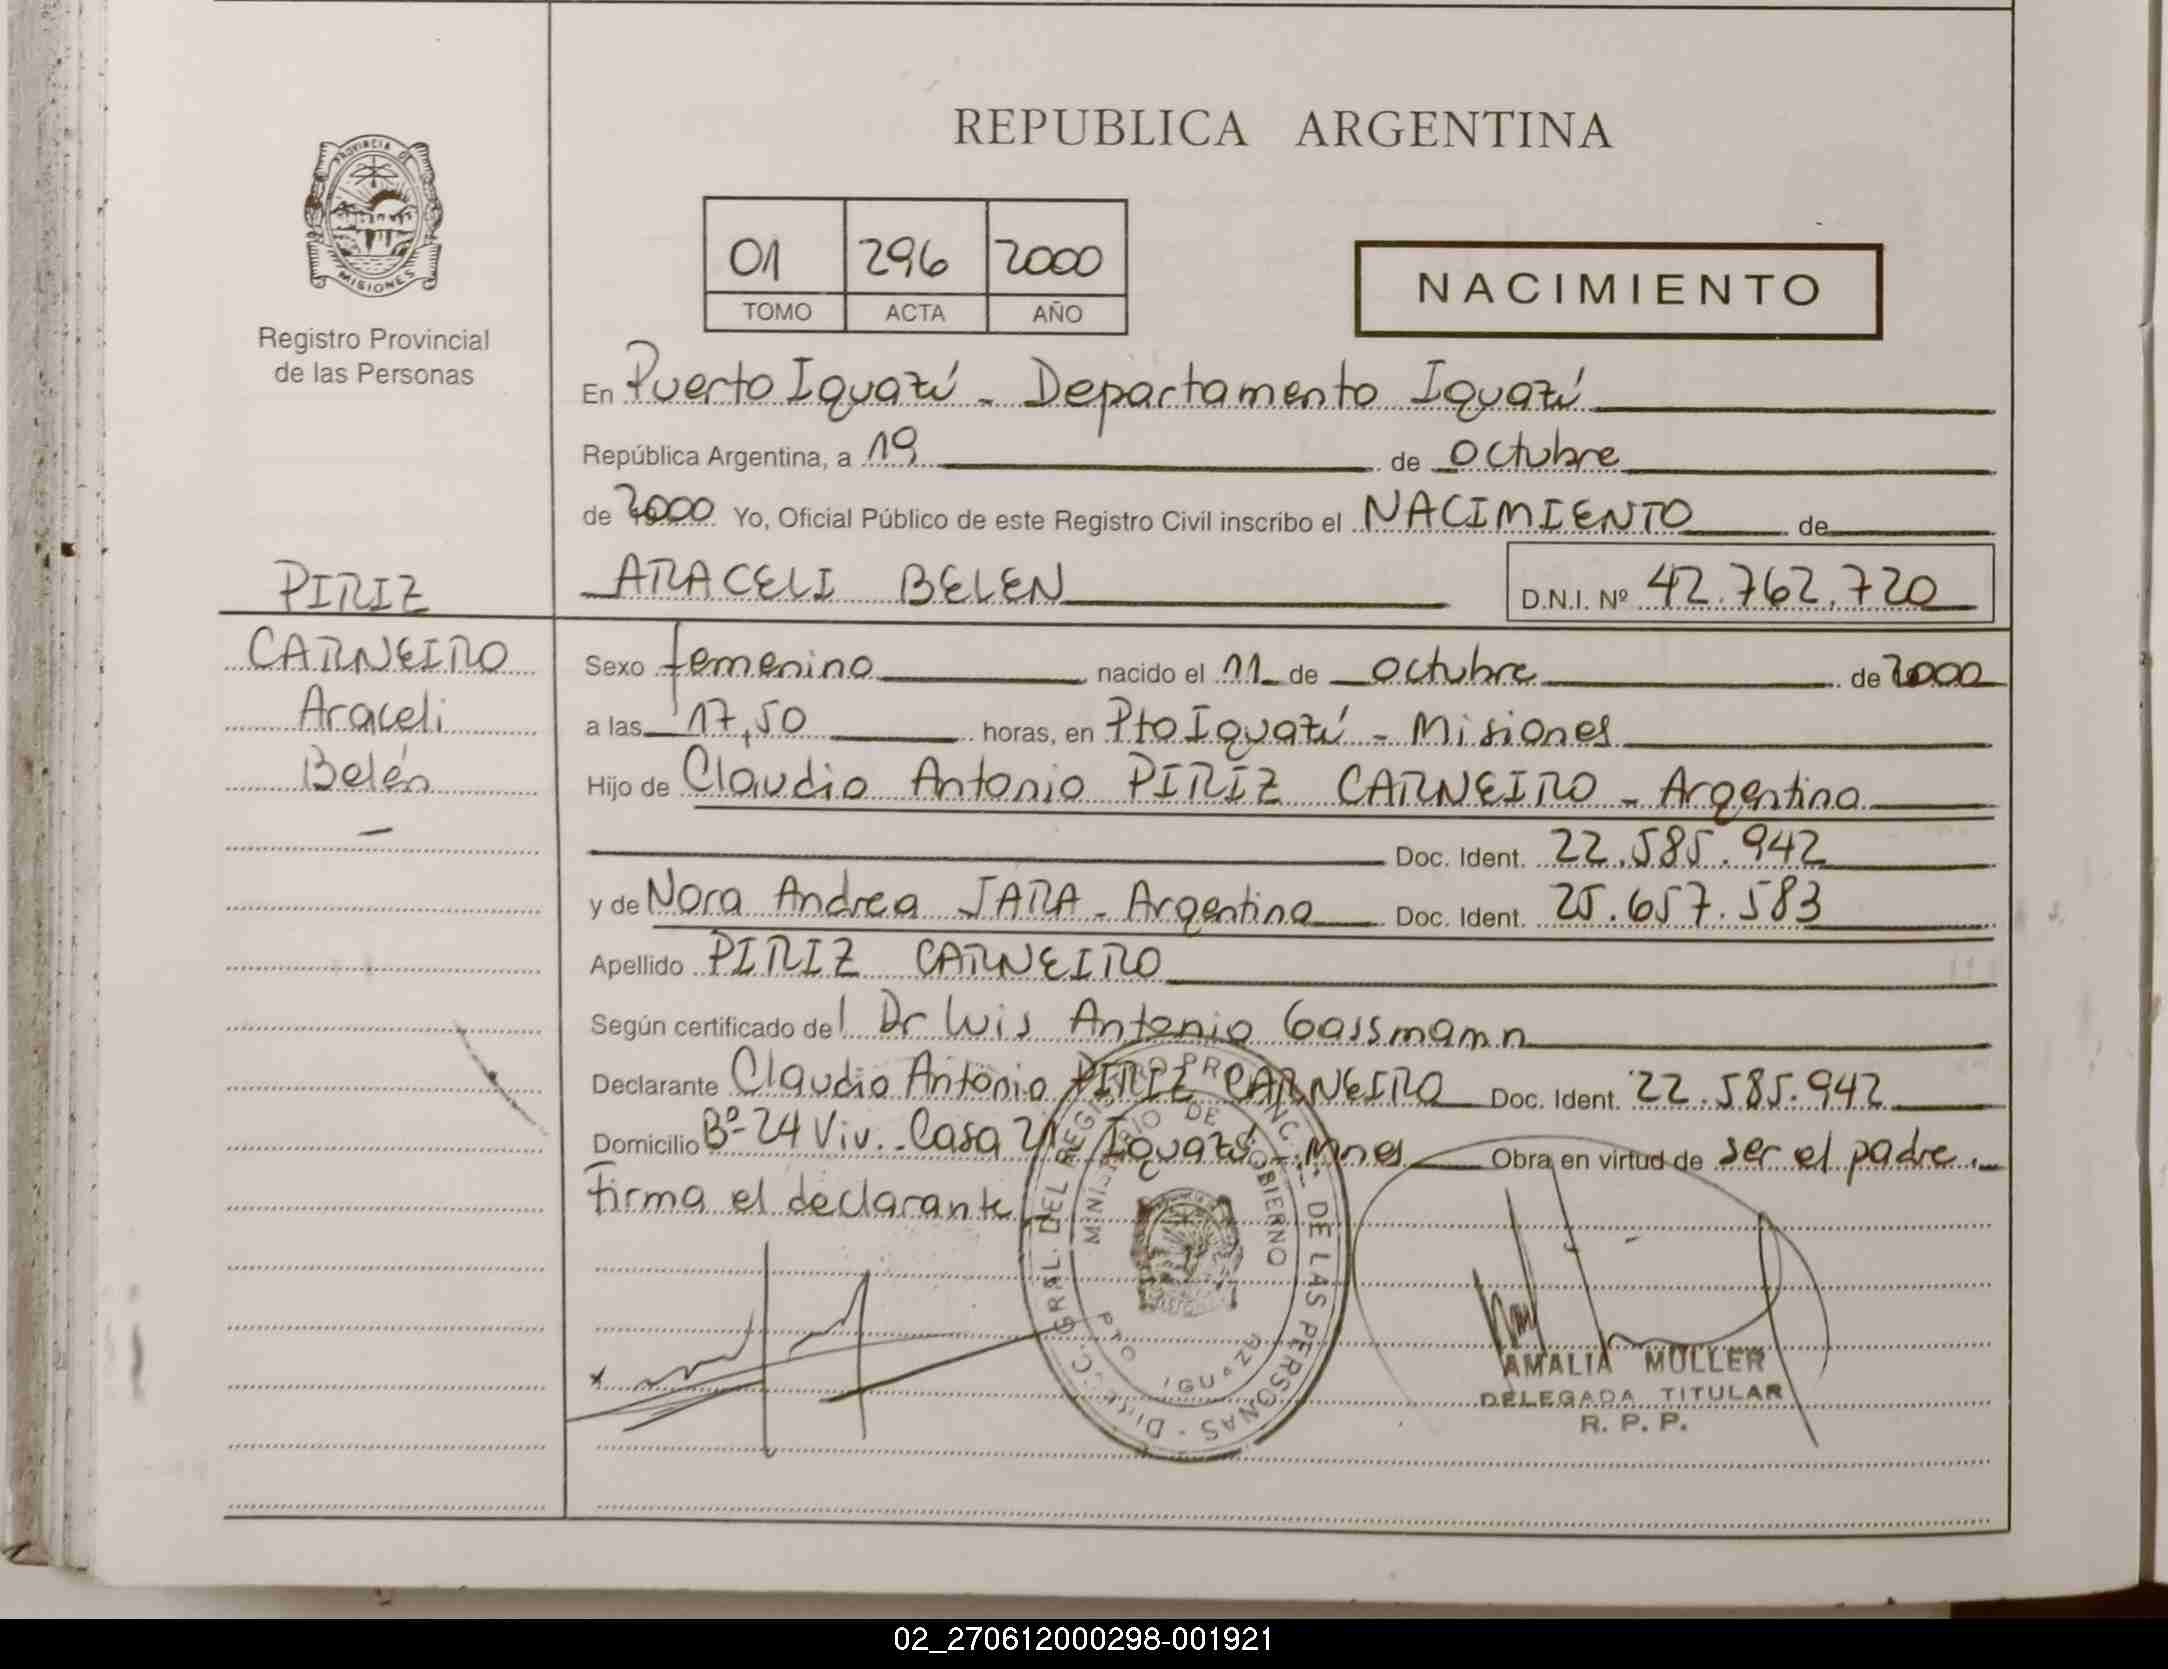 REPUBLICA ARGENTINA
PROVINCIA DE
MISIONES
Registro Provincial
de las Personas
01 296 2000
TOMO ACTA AÑO
NACIMIENTO
En Puerto Iguazú - Departamento Iguazú
República Argentina, a 19 de octubre
de 2000 Yo, Oficial Público de este Registro Civil inscribo el NACIMIENTO de
ARACELI BELEN D.N.I. Nº 42.762.720
PIRIZ
CARNEIRO
Araceli
Belén
Sexo femenino nacido el 11 de octubre de 2000
a las 17,50 horas, en Pto Iguazú - Misiones
Hijo de Claudio Antonio PIRIZ CARNEIRO - Argentina
Doc. Ident. 22.585.942
y de Nora Andrea JARA - Argentina Doc. Ident. 25.657.583
Apellido PIRIZ CARNEIRO
Según certificado del Dr Luis Antonio Gassmann
Declarante Claudio Antonio PIRIZ CARNEIRO Doc. Ident. 22.585.942
Domicilio Bº 24 Viv. - Casa Iguazú - Mnes Obra en virtud de ser el padre.
Firma el declarante
DIREC. GRAL. DEL REGISTRO PROVINC. DE LAS PERSONAS
MINISTERIO DE GOBIERNO
PTO IGUAZU
AMALIA MULLER
DELEGADA TITULAR
R. P. P.
02_270612000298-001921